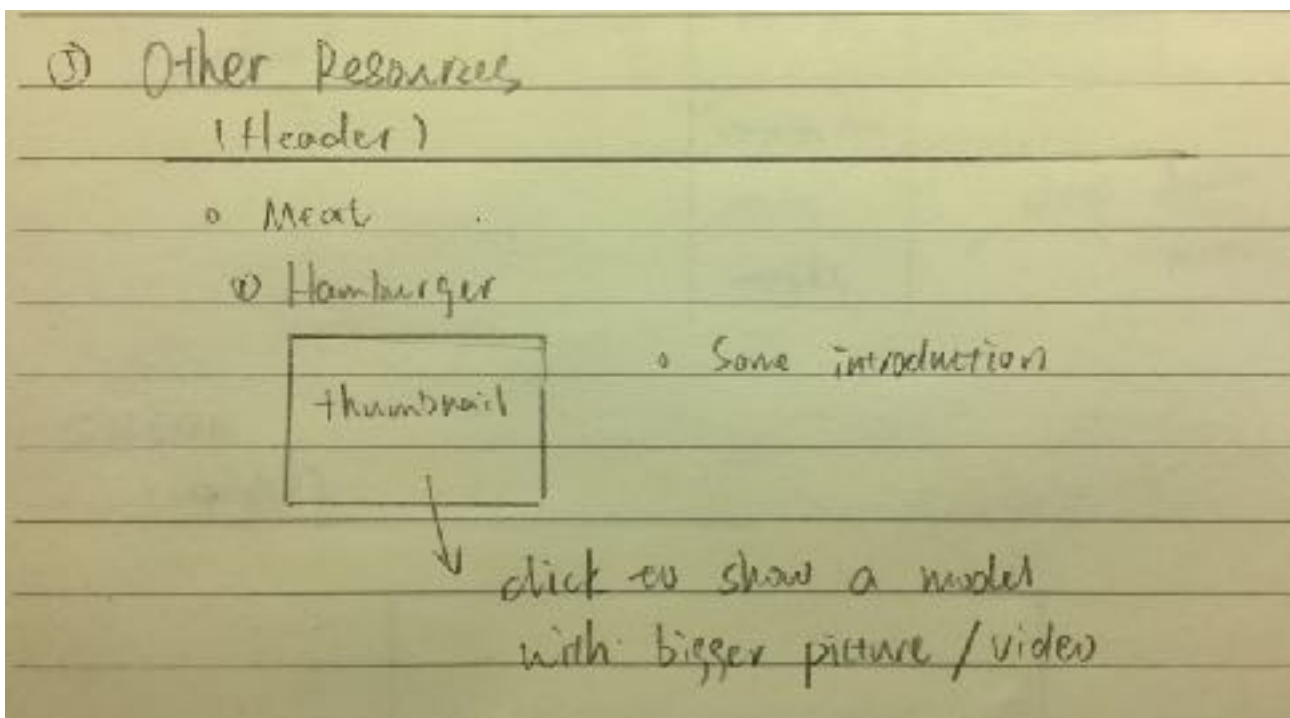 ⑤ Other Resources
(Header)
Meat
① Hamburger
thumbnail
Some introduction
click to show a model
with bigger picture / video